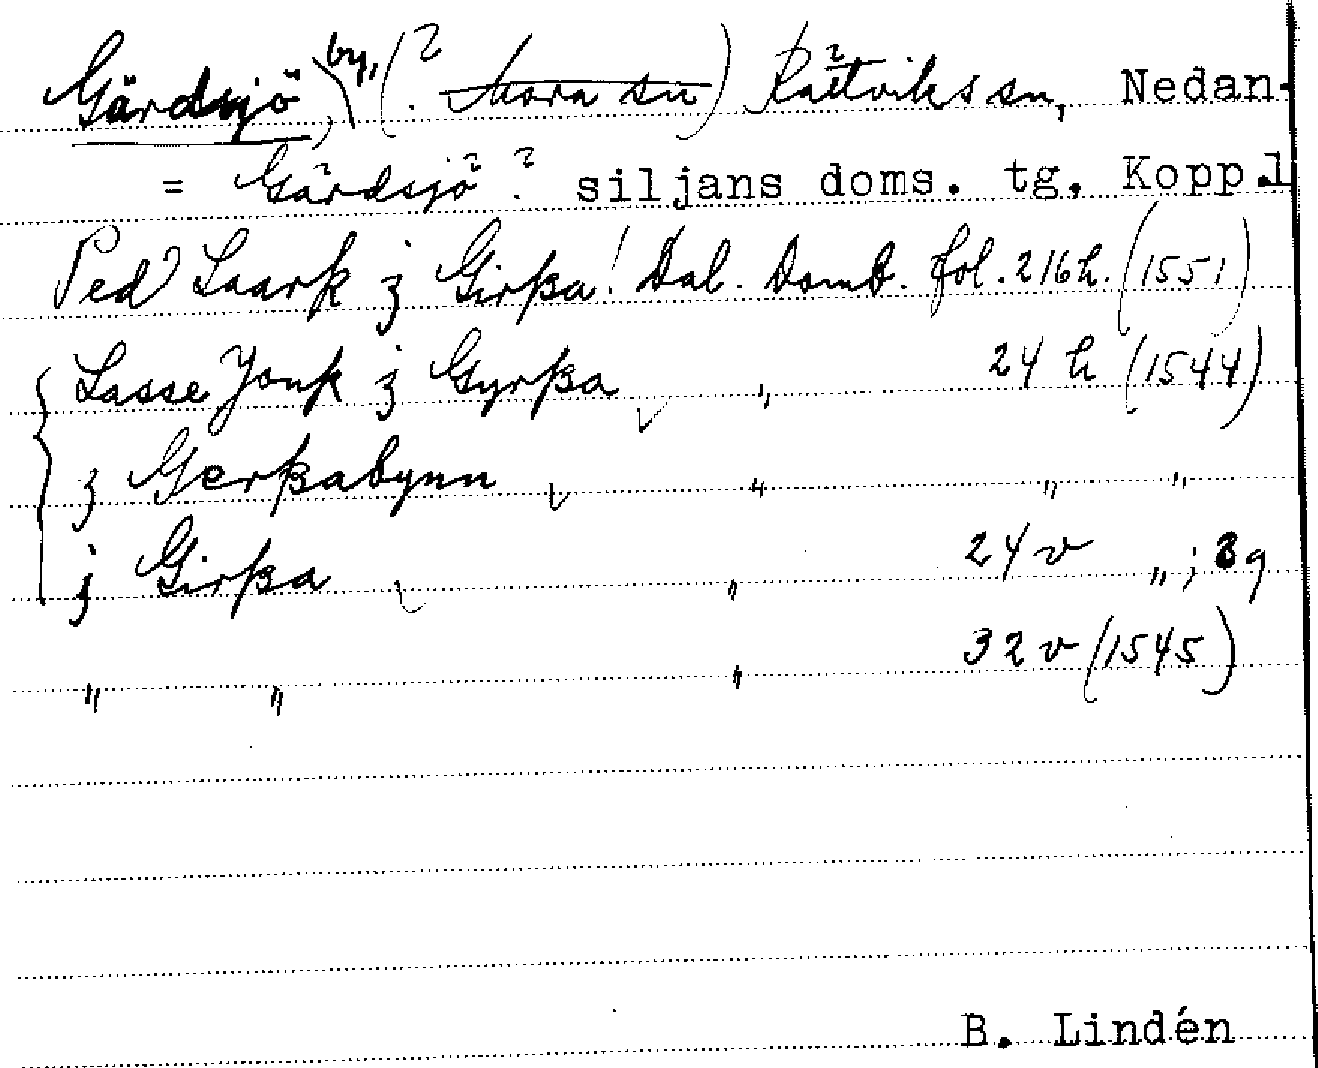 Gärdsjö, by, (? Mora sn) Rättviks sn, Nedan-
= Gärdsjö? siljans doms. tg, Kopp.l
Ped Laarß j Girßa! Dal. Domb. fol. 216 h. (1551)
Lasse Jonß j Gyrßa " 24 h (1544)
j Gerßabynn " " "
j Girßa " 24 v "; 
" " " 32 v (1545)
B. Lindén